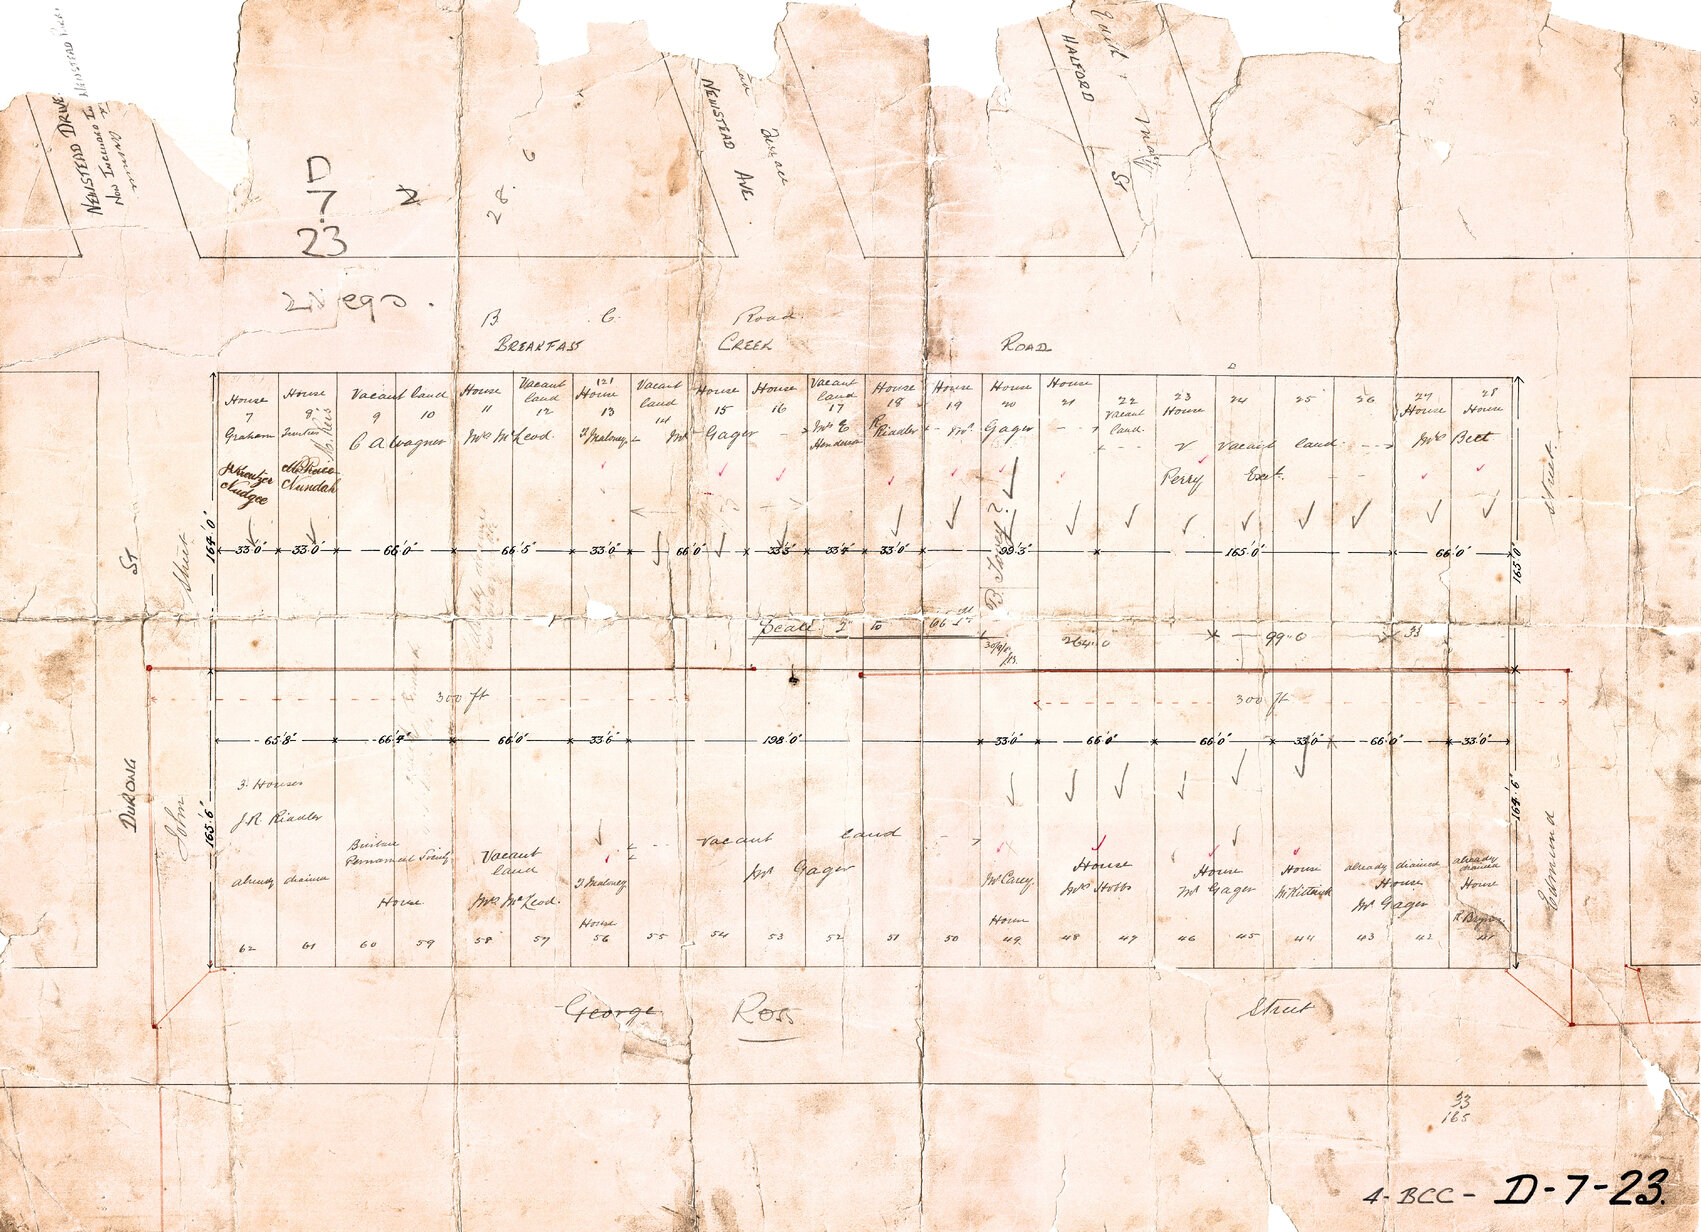 NEWSTEAD DRIVE.
NOW INCLUDED IN NEWSTEAD PARK
NEWSTEAD AVE.
Terrace
HALFORD ST
D
7
23
28.
2 Negs.
B. C. Road.
BREAKFAST CREEK ROAD
House 7 Graham
J Kreutzer Nudgee
House 8
Nundah
Vacant land
9 10
C A Wagner
House 11
Vacant land 12
Mrs McLeod.
121
House 13
J Maloney
Vacant land 14
House 15
House 16
Mr Gager
Vacant land 17
Mrs E Henderson
House 18
R Riddler
House 19
House 20
House 21
Mr Gager
22 Vacant land.
23 House
24 25 26
Vacant land
Perry Exct.
27 House
28 House
Mrs Bett
33'0" 33'0" 66'0" 66'5" 33'0" 66'0" 33'3" 33'4" 33'0" 99'3" 165'0" 66'0"
164'0"
165'0"
Scale 2" to 66 ft
264.0 99.0 33
300 ft
300 ft
65'8" 66'4" 66'0" 33'6" 198'0" 33'0" 66'0" 66'0" 33'0" 66'0" 33'0"
165'6"
164'6"
3 Houses
J.R. Riddler
already drained
House
Vacant land
Mrs McLeod.
J Maloney
House
vacant land
Mr Gager
Mr Carey
House
House
Mrs Hobbs
House
Mr Gager
House
already drained
House
Mr Gager
already drained
House
62 61 60 59 58 57 56 55 54 53 52 51 50 49 48 47 46 45 44 43 42 41
DURONG ST
John Street
Edmund Street
George Ross Street
33
165
4-BCC- D-7-23.